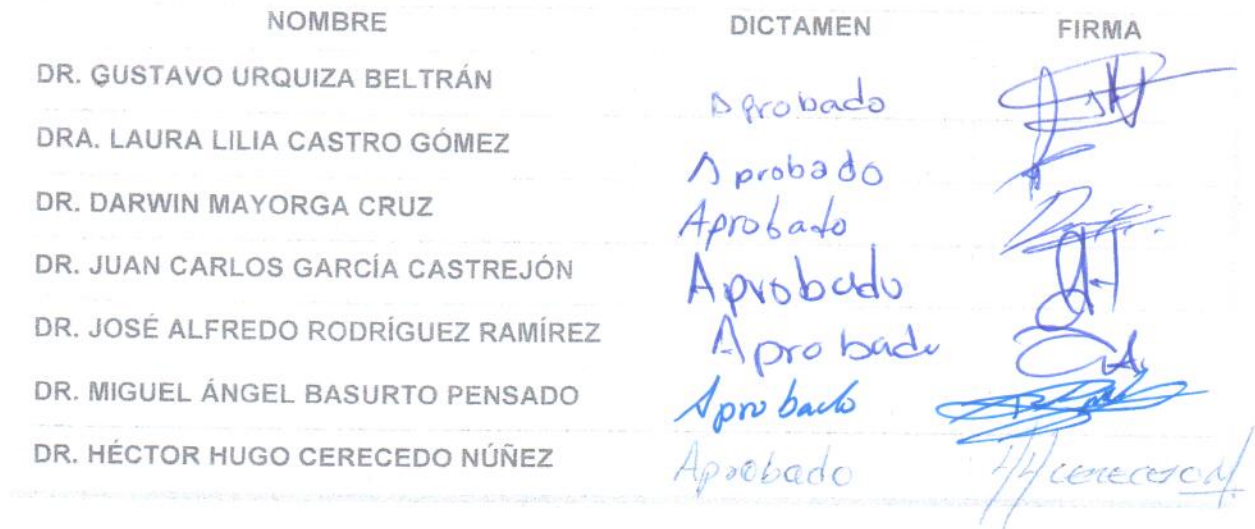 NOMBRE DICTAMEN FIRMA
DR. GUSTAVO URQUIZA BELTRÁN Aprobado
DRA. LAURA LILIA CASTRO GÓMEZ Aprobado
DR. DARWIN MAYORGA CRUZ Aprobado
DR. JUAN CARLOS GARCÍA CASTREJÓN Aprobado
DR. JOSÉ ALFREDO RODRÍGUEZ RAMÍREZ Aprobado
DR. MIGUEL ÁNGEL BASURTO PENSADO Aprobado
DR. HÉCTOR HUGO CERECEDO NÚÑEZ Aprobado